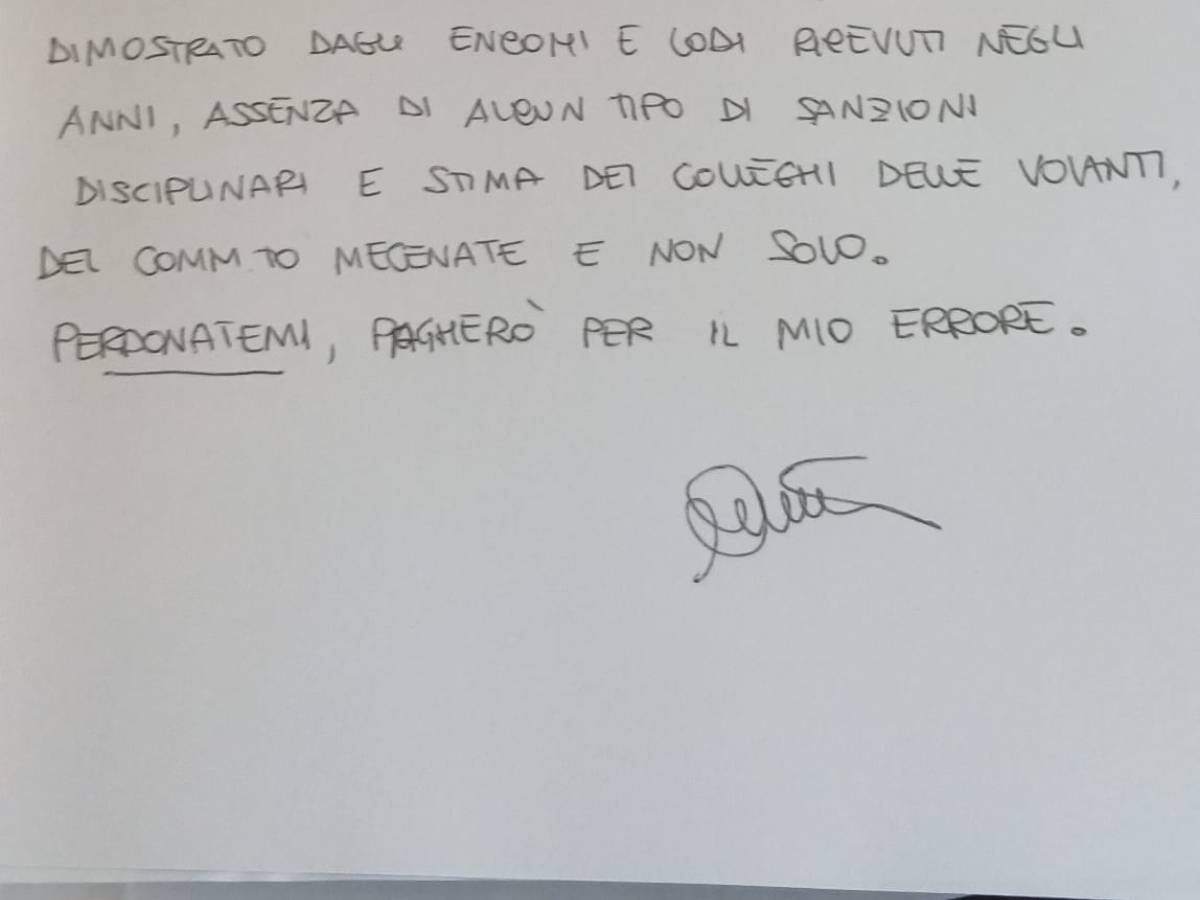 DIMOSTRATO DAGLI ENCOMI E LODI RICEVUTI NEGLI
ANNI, ASSENZA DI ALCUN TIPO DI SANZIONI
DISCIPLINARI E STIMA DEI COLLEGHI DELLE VOLANTI,
DEL COMM.TO MECENATE E NON SOLO.
PERDONATEMI, PAGHERÒ PER IL MIO ERRORE.